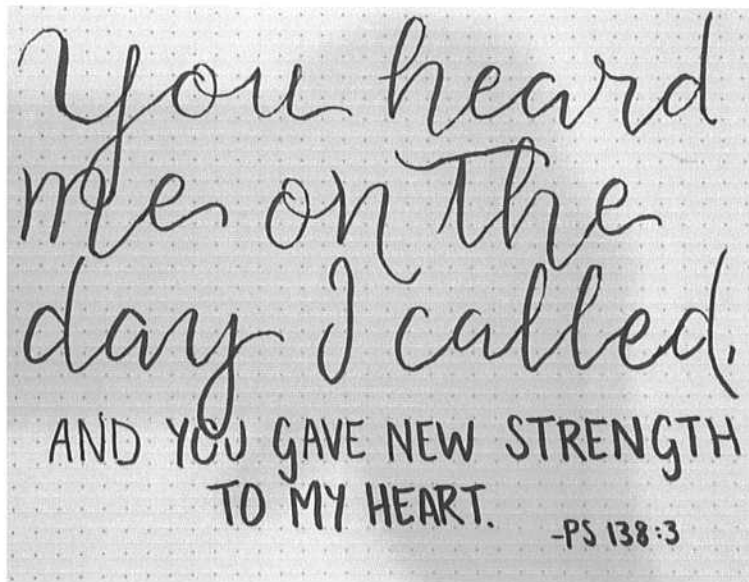 You heard
me on The
day I called.
AND YOU GAVE NEW STRENGTH
TO MY HEART.
-PS 138:3